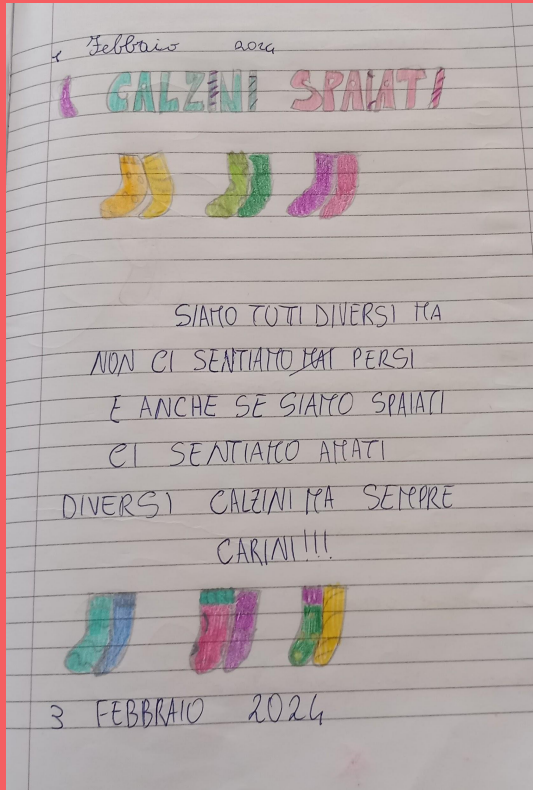 1 Febbraio 2024
I CALZINI SPAIATI
SIAMO TUTI DIVERSI MA
NON CI SENTIAMO MAI PERSI
E ANCHE SE SIAMO SPAIATI
CI SENTIAMO AMATI
DIVERSI CALZINI MA SEMPRE
CARINI!!!
3 FEBBRAIO 2024